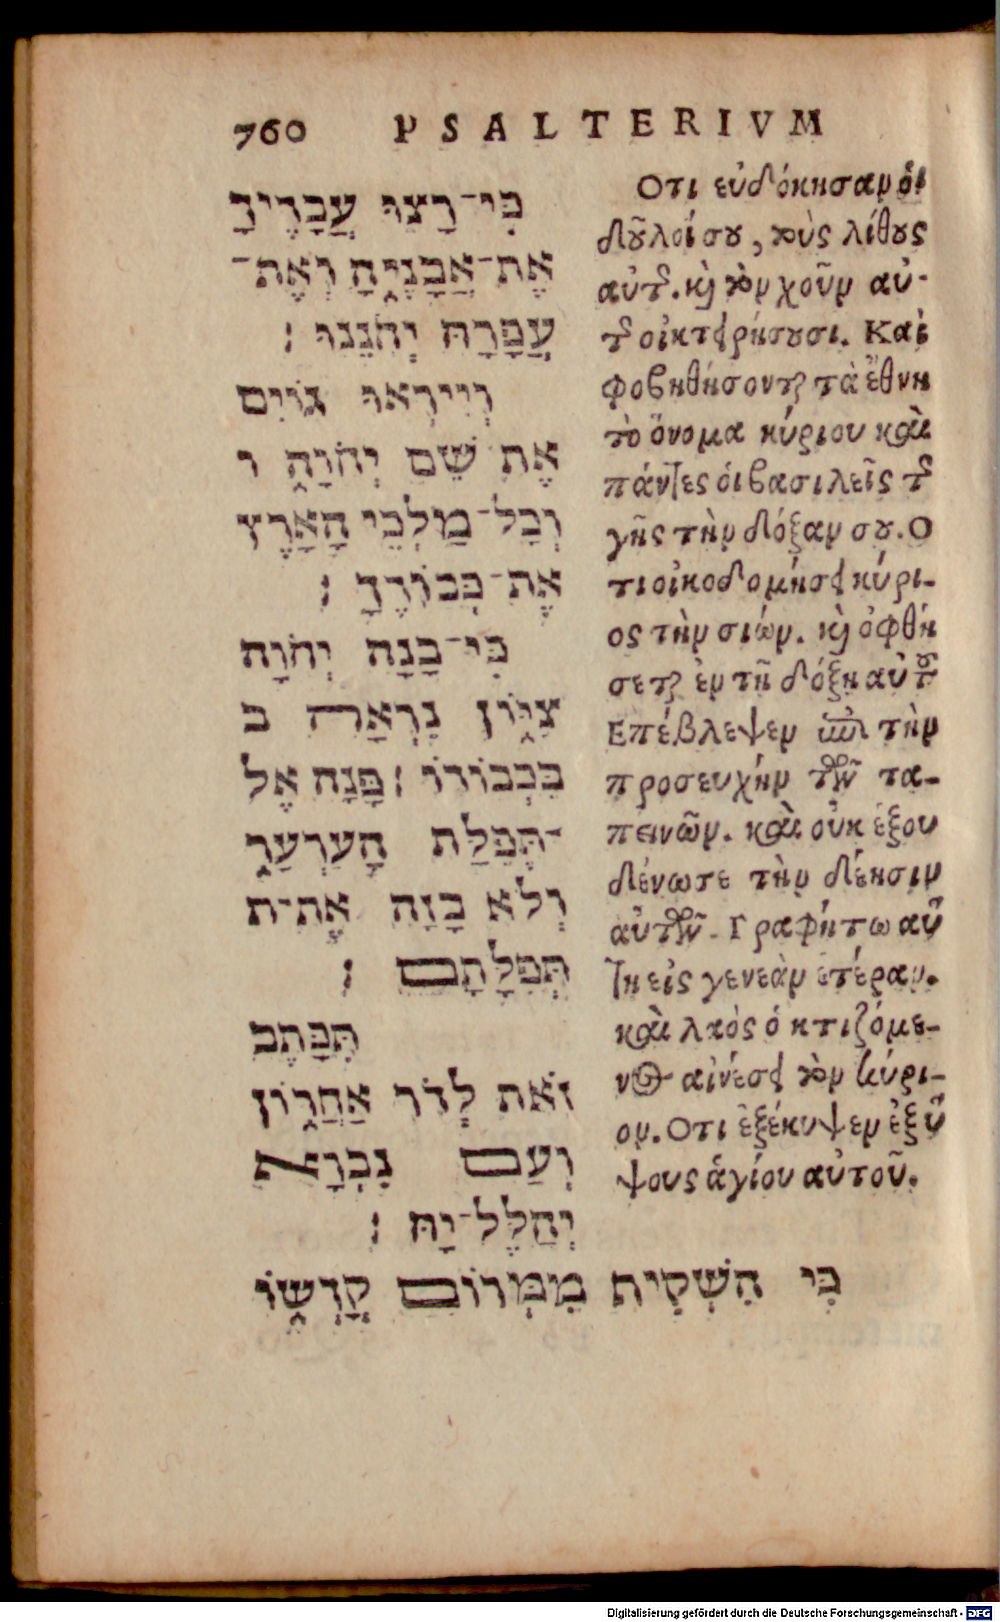 760 PSALTERIVM
כִּי־רָצוּ עֲבָדֶיךָ
אֶת־אֲבָנֶיהָ וְאֶת־
עֲפָרָהּ יְחֹנֵנוּ :
וְיִירְאוּ גוֹיִם
אֶת שֵׁם יְהֹוָה ו
וְכָל־מַלְכֵי הָאָרֶץ
אֶת־כְּבוֹדֶךָ :
כִּי־בָנָה יְהֹוָה
צִיּוֹן נִרְאָה ב
בִּכְבוֹדוֹ : פָּנָה אֶל
־תְּפִלַּת הָעַרְעָר
וְלֹא בָזָה אֶת־ת
תְּפִלָּתָם :
תִּכָּתֶב
זֹאת לְדֹר אַחֲרוֹן
וְעַם נִבְרָא
יְהַלֶּל־יָהּ :
כִּי הִשְׁקִית מִמְּרוֹם קָדְשׁוֹ
Οτι εὐδόκησαν ὁἱ
δοῦλοί σου, τοὺς λίθους
αὐτῆς. καὶ τὸν χοῦν αὐ-
τῆς οἰκτειρήσουσι. Καὶ
φοβηθήσονται τὰ ἔθνη
τὸ ὄνομα κύριου καὶ
πάντες ὁι βασιλεῖς τῆς
γῆς τὴν δόξαν σου. Ο
τι οἰκοδομήσει κύρι-
ος τὴν σιών. καὶ ὀφθή
σεται ἐν τῇ δόξῃ αὐτοῦ
Επέβλεψεν ἐπὶ τὴν
προσευχήν τῶν τα-
πεινῶν. καὶ οὐκ ἐξου
δένωσε τὴν δέησιν
αὐτῶν. Γραφήτω αὕ
τη εἰς γενεὰν ἑτέραν.
καὶ λαὸς ὁ κτιζόμε-
νος αἰνέσει τὸν κύρι-
ον. Οτι ἐξέκυψεν ἐξ ὕ
ψους ἁγίου αὐτοῦ.
Digitalisierung gefördert durch die Deutsche Forschungsgemeinschaft - DFG